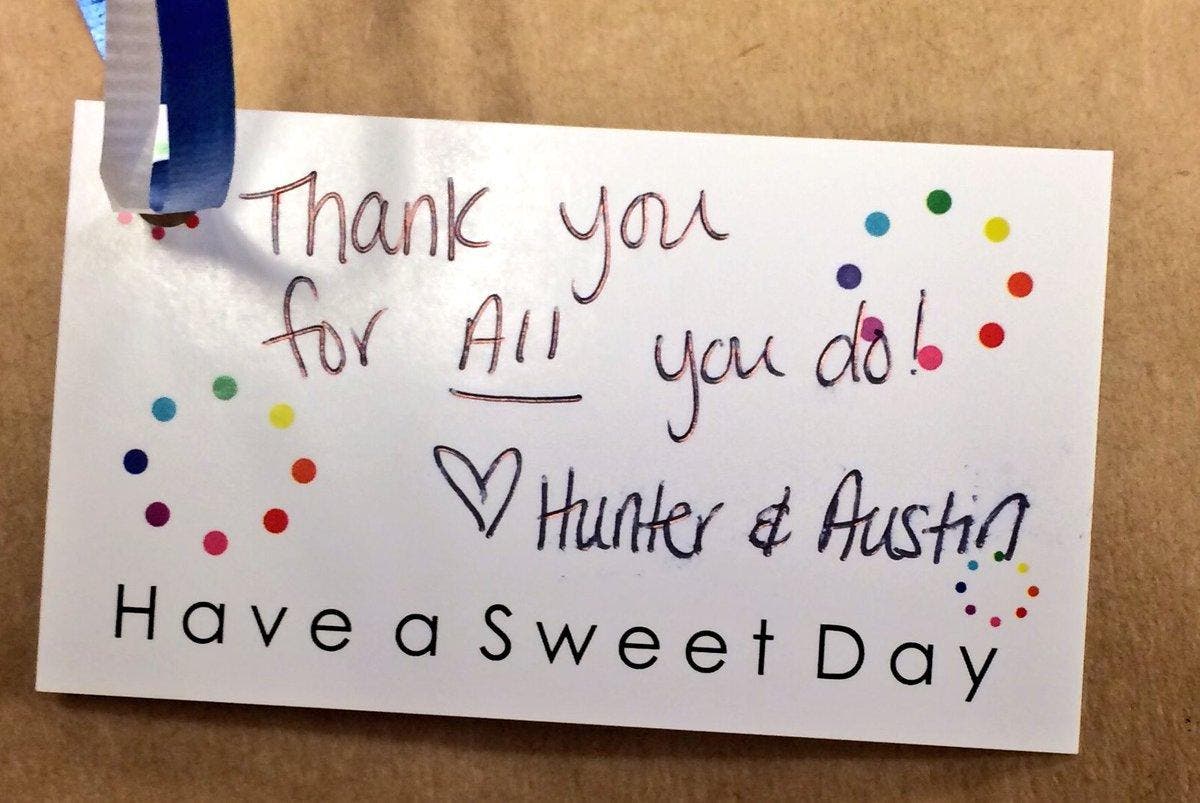 Thank you
for All you do!
♡ Hunter & Austin
Have a Sweet Day